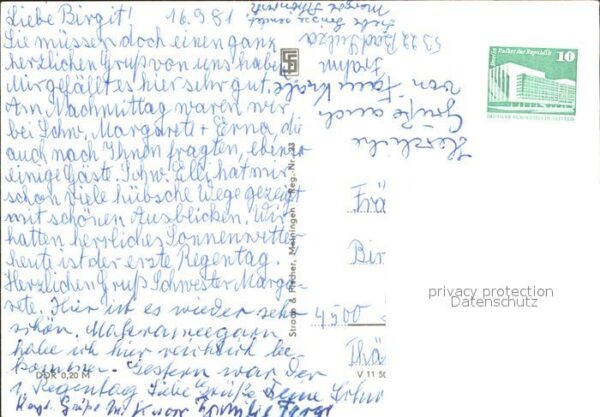 Liebe Birgit! 16.9.81
Sie müssen doch einen ganz
herzlichen Gruß von uns haben
Mir gefällt es hier sehr gut.
Am Nachmittag waren wir
bei Schw. Margarete + Erna, die
auch nach Ihnen fragten, ebenso
einige Gäste. Schw. Elli hat mir
schon viele hübsche Wege gezeigt
mit schönen Ausblicken. Wir
hatten herrliches Sonnenwetter
heute ist der erste Regentag.
Herzlichen Gruß Schwester Marga-
rete. Hier ist es wieder sehr
schön.
habe ich hier reichlich be
kommen. Gestern war der
1. Regentag Liebe Grüße Deine
Grüße Familie
Herzliche
Grüße auch
von
5322 Bad Sulza
Straub & Fischer, Meiningen · Reg.-Nr.
DDR 0,20 M
V 11 50
Berlin Palast der Republik
10
DEUTSCHE DEMOKRATISCHE REPUBLIK
Frä
Bir
4500
Thä
privacy protection
Datenschutz